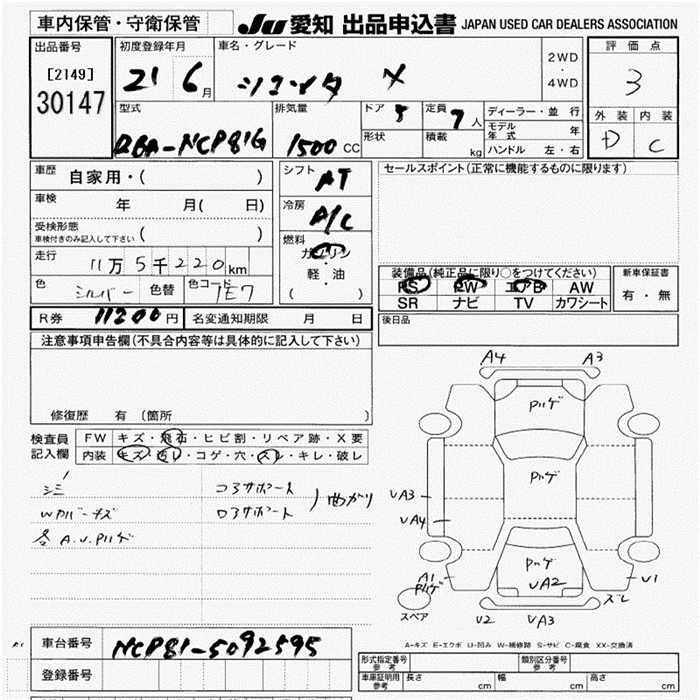 車内保管・守衛保管
JU 愛知 出品申込書 JAPAN USED CAR DEALERS ASSOCIATION
出品番号
[2149]
30147
初度登録年月
21 6月
車名・グレード
シエンタ X
2WD
・
4WD
評価点
3
外装 内装
D C
型式
DBA-NCP81G
排気量
1500 CC
ドア 5
形状
定員 7人
積載 kg
ディーラー・並行
モデル年式 年
ハンドル 左・右
車歴 自家用・( )
車検 年 月( 日)
受検形態
車検付きのみ記入して下さい ( )
走行 11万5千220km
色 シルバー 色替 色コード 1E7
シフト AT
冷房 A/C
燃料
ガソリン
・
軽・油
( )
セールスポイント(正常に機能するものに限ります)
装備品(純正品に限り○をつけてください)
PS PW エアB AW
SR ナビ TV カワシート
新車保証書
有・無
R券 11200円 名変通知期限 月 日
後日品
注意事項申告欄(不具合内容等は具体的に記入して下さい)
修復歴 有(箇所 )
検査員記入欄
FW キズ・飛石・ヒビ割・リペア跡・X要
内装 キズ・汚レ・コゲ・穴・スレ・キレ・破レ
シミ
WPバーキズ
各A.U.Pハゲ
コアサポート
ロアサポート
曲がり
A4 A3
Pハゲ
Pハゲ
UA3
UA4
Pハゲ
UA2
A1
U1
スレ
スペア
U2 UA3
A-キズ E-エクボ U-凹み W-補修跡 S-サビ C-腐食 XX-交換済
車台番号 NCP81-5092595
登録番号
形式指定番号 参考
類別区分番号 参考
車庫証明用 参考 長さ cm 幅 cm 高さ cm